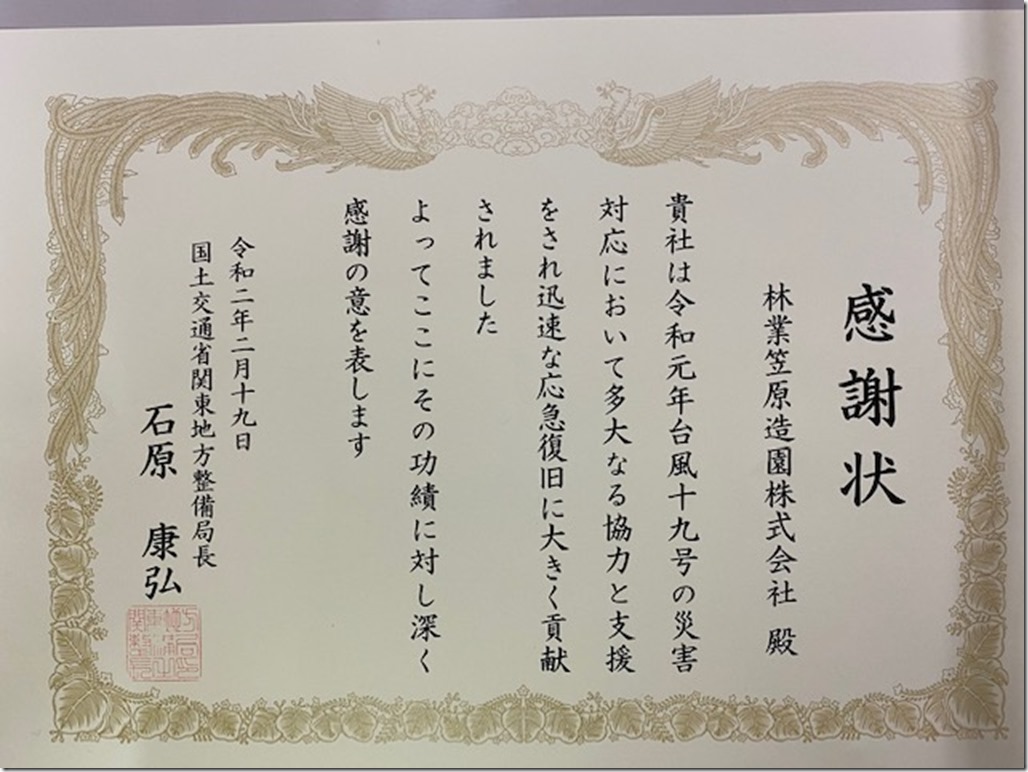 感謝状
林業笠原造園株式会社 殿
貴社は令和元年台風十九号の災害
対応において多大なる協力と支援
をされ迅速な応急復旧に大きく貢献
されました
よってここにその功績に対し深く
感謝の意を表します
令和二年二月十九日
国土交通省関東地方整備局長
石原 康弘